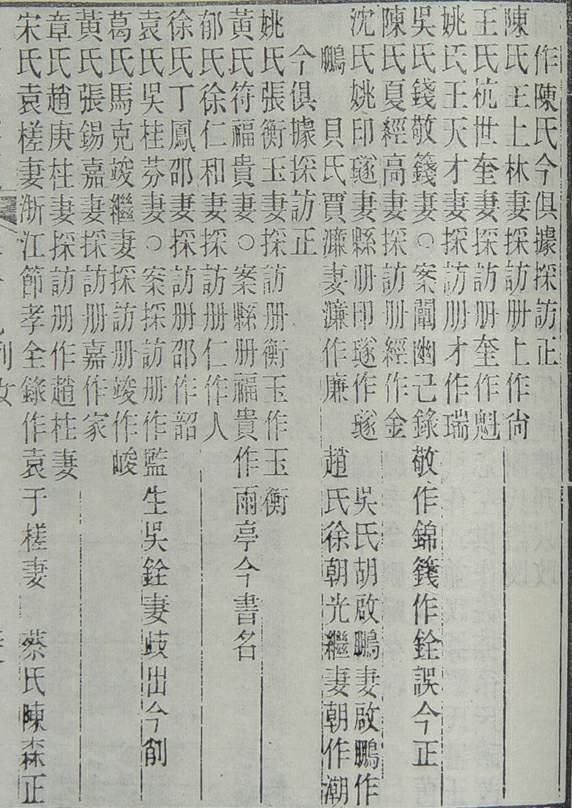 作陳氏今俱據採訪正
陳氏王上林妻採訪册上作尙
王氏杭世奎妻採訪册奎作魁
姚氏王天才妻採訪册才作瑞
吳氏錢敬籛妻○案闡幽己錄敬作錦籛作銓誤今正
陳氏夏經高妻採訪册經作金
沈氏姚印璲妻縣册印璲作璲　吳氏胡啟鵬妻啟鵬作
鵬　貝氏賈濂妻濂作廉　趙氏徐朝光繼妻朝作潮
今俱據採訪正
姚氏張衡玉妻採訪册衡玉作玉衡
黃氏符福貴妻○案縣册福貴作雨亭今書名
郁氏徐仁和妻採訪册仁作人
徐氏丁鳳邵妻採訪册邵作韶
袁氏吳桂芬妻○案採訪册作監生吳銓妻歧出今削
葛氏馬克竣繼妻採訪册竣作峻
黃氏張錫嘉妻採訪册嘉作家
章氏趙庚柱妻採訪册作趙柱妻
宋氏袁槎妻浙江節孝全錄作袁于槎妻　蔡氏陳森正
列女